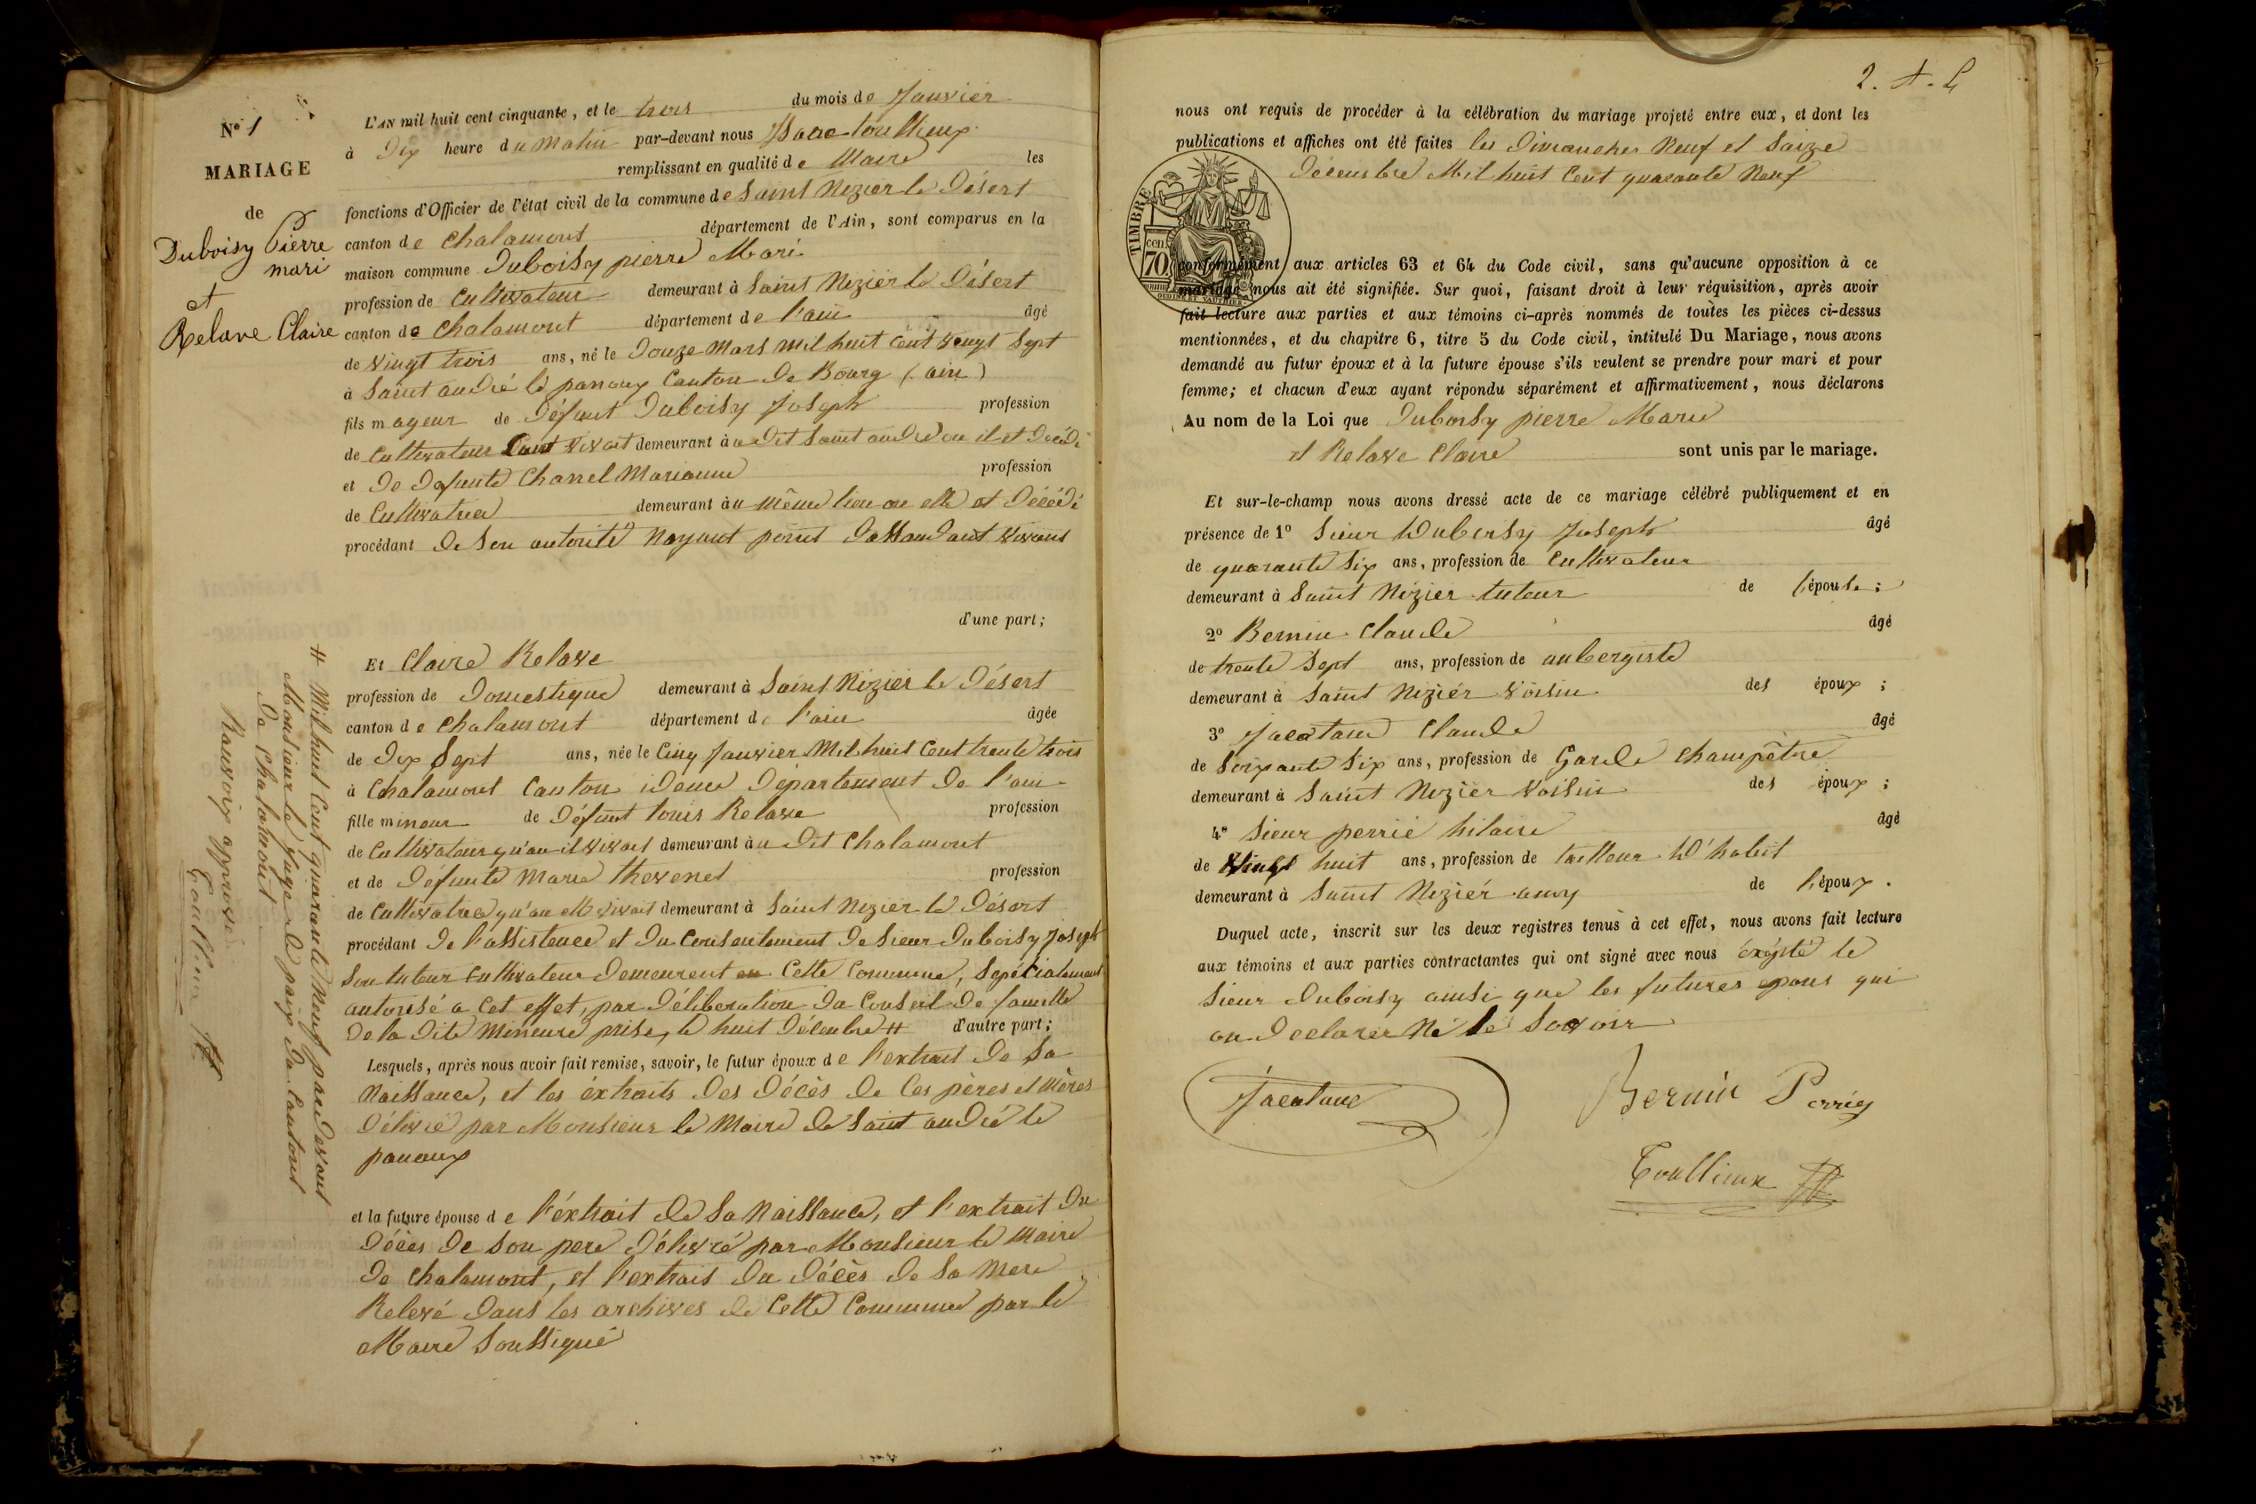 N° 1
MARIAGE
de
Duboisy Pierre
mari
et
Relave Claire
L'AN mil huit cent cinquante, et le trois du mois de Janvier
à Dix heure du Matin par-devant nous Isaac Toullieux
remplissant en qualité de Maire les
fonctions d'Officier de l'état civil de la commune de Saint Nizier le Désert
canton de Chalamont département de l'Ain, sont comparus en la
maison commune Duboisy pierre Mari
profession de Cultivateur demeurant à Saint Nizier le Désert
canton de Chalamont département de l'ain âgé
de vingt trois ans, né le Douze Mars mil huit cent vengt Sept
à Saint andré le panoux Canton de Bourg (ain)
fils mageur de Défunt Duboisy Joseph profession
de Cultivateur vivat demeurant à u Dit Saint andré ou il et Décédé
et De Defunte Chanel Marianne profession
de Cultivatrice demeurant à u même lieu ou elle et Décédé
procédant De Son autorité Nayant point Dassandant vivant
d'une part;
Et Claire Relave
profession de Domestique demeurant à Saint Nizier le Désert
canton de Chalamont département de l'ain âgée
de Dix Sept ans, née le Cinq Janvier Mil huit Cent trente trois
à Chalamont Canton idem Département De l'ain
fille mineur de Défunt Louis Relave profession
de Cultivateur qu'an il vivait demeurant à u Dit Chalamont
et de Défunte Marie Thevenet profession
de Cultivatrice qu'an elle vivait demeurant à Saint Nizier le Désert
procédant De l'assistence et Du Consentement De Sieur Duboisy Joseph
Son tuteur Cultivateur Demeurent en Cette Commune, Sepécialement
autorisé a Cet effet, par Déliberation Du Conseil De famille
De la Dite Mineure prise, le huit Décembre # d'autre part;
# Mil huit Cent quarante Neuf par Devant
Monsieur le Juge de paix Du Canton
De Chalamont
Ranvoix approuvé
Toullieux
Lesquels, après nous avoir fait remise, savoir, le futur époux de l'extrait De Sa
Naissance, et les éxtraits Des Décès De Ces pères et Mères
Délivré par Monsieur le Maire De Saint andré le
panoux
et la future épouse de l'éxtrait De Sa Naissance, et l'extrait Du
Décès De Son pere Délivré par Monsieur le Maire
De Chalamont, et l'extrait Du Décès De Sa Mere
Relevé Dans les archives De Cette Commune par le
Maire Soussigné
2.
nous ont requis de procéder à la célébration du mariage projeté entre eux, et dont les
publications et affiches ont été faites les Dimanches Neuf et Saize
Décembre Mil huit Cent quarante Neuf
TIMBRE
cen.
70
conformément aux articles 63 et 64 du Code civil, sans qu'aucune opposition à ce
mariage nous ait été signifiée. Sur quoi, faisant droit à leur réquisition, après avoir
fait lecture aux parties et aux témoins ci-après nommés de toutes les pièces ci-dessus
mentionnées, et du chapitre 6, titre 5 du Code civil, intitulé Du Mariage, nous avons
demandé au futur époux et à la future épouse s'ils veulent se prendre pour mari et pour
femme; et chacun d'eux ayant répondu séparément et affirmativement, nous déclarons
Au nom de la Loi que Duboisy pierre Marie
et Relave Claire sont unis par le mariage.
Et sur-le-champ nous avons dressé acte de ce mariage célébré publiquement et en
présence de 1° Sieur Duboisy Joseph âgé
de quarante Six ans, profession de Cultivateur
demeurant à Saint Nizier tuteur de l'épouse;
2° Bernin Claude âgé
de trente Sept ans, profession de aubergiste
demeurant à Saint Nizier voisin des époux;
3° Jacatane Claude âgé
de Soixante Six ans, profession de Garde Champêtre
demeurant à Saint Nizier voisin des époux;
4° Sieur perrié hilaire âgé
de vingt huit ans, profession de tailleur D'habit
demeurant à Saint Nizier amy de l'époux.
Duquel acte, inscrit sur les deux registres tenus à cet effet, nous avons fait lecture
aux témoins et aux parties contractantes qui ont signé avec nous éxépté le
Sieur Duboisy ainsi que les futures epous qui
on Declarer Né le Savoir
Jacatane
Bernin Perrié
Toullieux